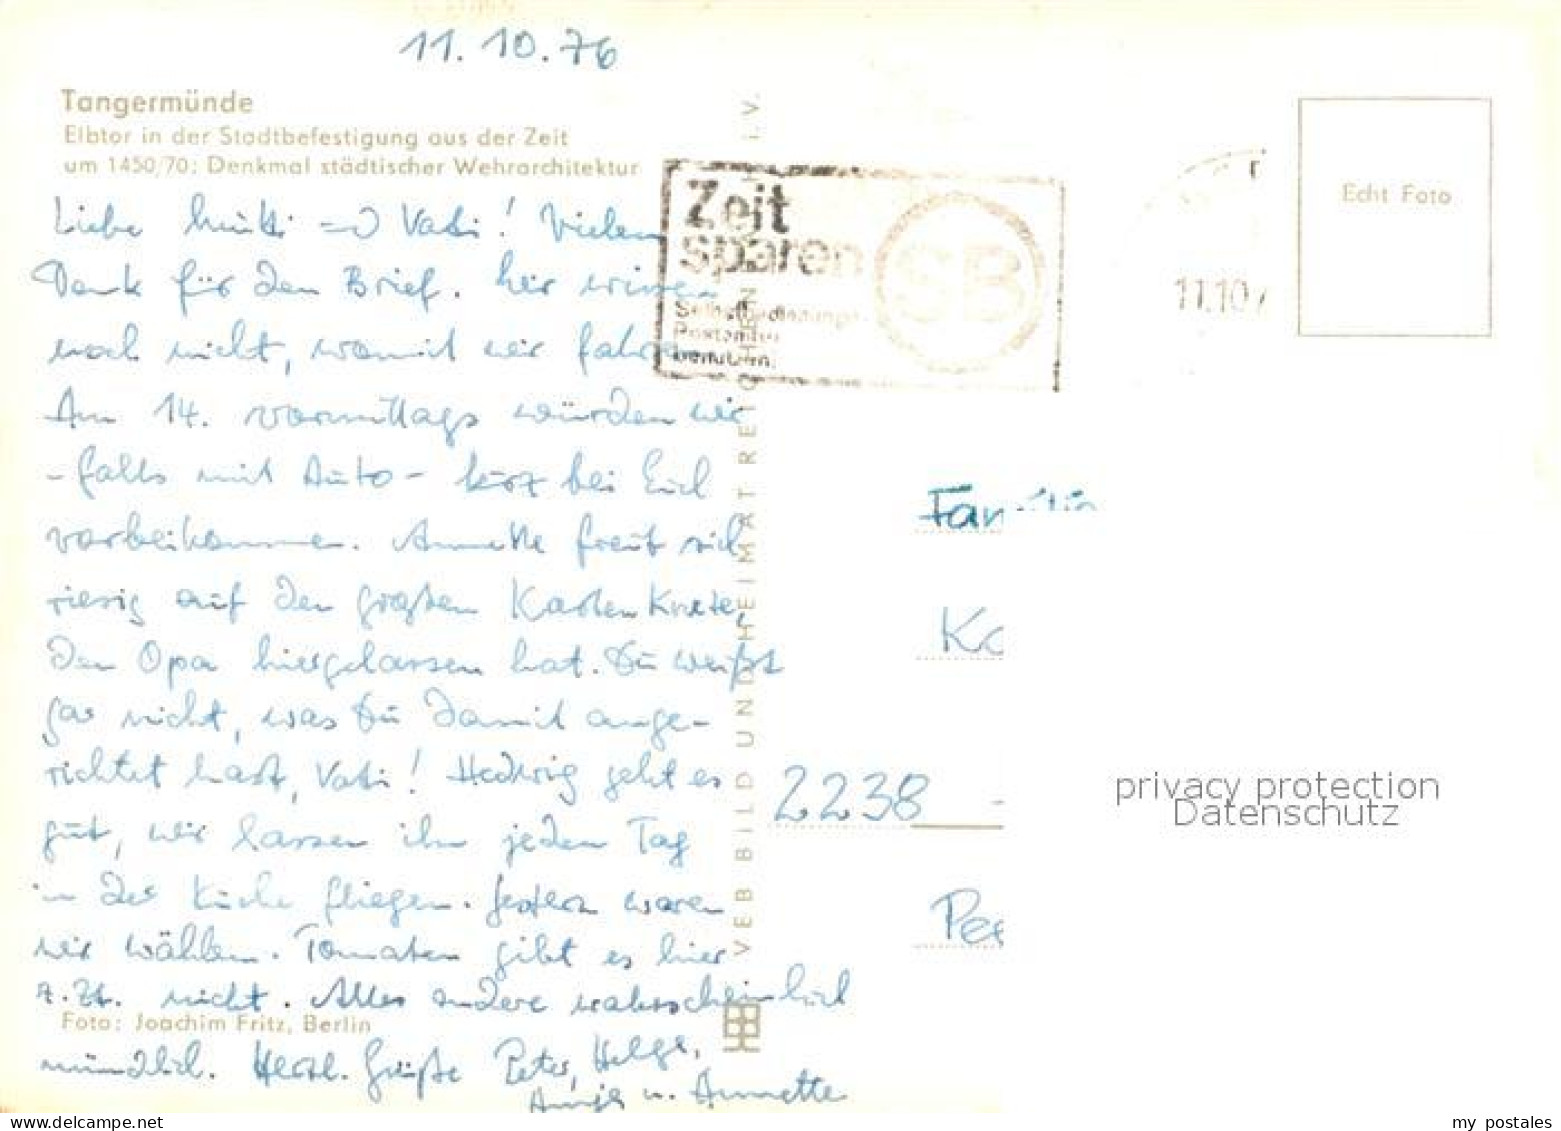 11.10.76
Tangermünde
Elbtor in der Stadtbefestigung aus der Zeit
um 1450/70: Denkmal städtischer Wehrarchitektur
Liebe Mutti und Vati! Vielen
Dank für den Brief. Wir wissen
noch nicht, womit wir fahren.
Am 14. vormittags würden wir
- falls mit Auto - kurz bei Euch
vorbeikommen. Annette freut sich
riesig auf den großen Kasten Knete,
den Opa hiergelassen hat. Du weißt
gar nicht, was Du damit ange-
richtet hast, Vati! Hedwig geht es
gut, wir lassen ihn jeden Tag
in der Küche fliegen. Gestern waren
wir wählen. Tomaten gibt es hier
z.Zt. nicht. Alles andere wahrscheinlich
Foto: Joachim Fritz, Berlin
mündlich. Herzl. Grüße Peter, Helga,
Antje u. Annette
VEB BILD UND HEIMAT REICHENBACH I.V.
Zeit
sparen
SB
Selbstbedienungs-
Postämter
benutzen.
11.10.7
Echt Foto
Familie
Ko
2238
Pe
privacy protection
Datenschutz
my postales